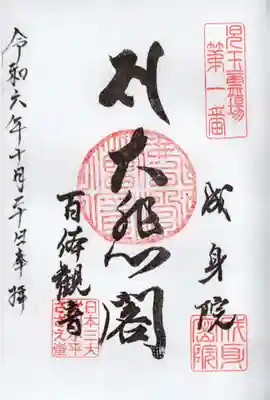 児玉霊場
第一番
大悲閣
百体觀音
成身院
令和六年十月二十日奉拝
日本三大
さざえ堂